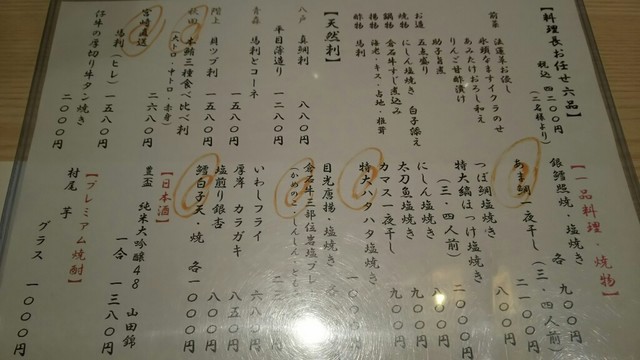 【料理長お任せ六品】
税込 四二〇〇円(二名様より)
前菜 法蓮草お浸し
永頭なますイクラのせ
あみたけおろし和え
りんご甘酢漬け
助子旨煮
お造 五点盛り
焼物 にしん塩焼き 白子添え
鍋物 倉石牛すじ煮込み
揚物 海老・キス・占地・椎茸
酢物 馬刺
【天然刺】
八戸 真鯛刺 八八〇円
平目薄造り 一二八〇円
青森 馬刺とコーネ 一五八〇円
階上 貝ツブ刺 一五八〇円
秋田 本鮪三種食べ比べ刺
(大トロ・中トロ・赤身) 二六八〇円
宮崎直送 馬刺(ヒレ) 一五八〇円
仔牛の厚切り牛タン焼き 二〇〇〇円
【一品料理・焼物】
銀鱈照焼・塩焼き 各 九〇〇円
あま鯛一夜干し(三、四人前) 二一〇〇円
つぼ鯛塩焼き 八〇〇
特大縞ほっけ塩焼き
(三・四人前) 二〇〇〇円
にしん塩焼き 八〇〇円
太刀魚塩焼き 九〇〇円
カマス一夜干し 九〇〇円
特大ハタハタ塩焼き
目光唐揚・塩焼き
倉石牛三部位岩塩プレ
いわしフライ 六八〇円
厚岸 カラガキ 八五〇円
塩煎り銀杏 八〇〇円
鱈白子天、焼 各一〇〇〇円
【日本酒】
豊盃 純米大吟醸48 山田錦
一合 一三八〇円
【プレミアム焼酎】
村尾 芋
グラス 一〇〇〇円